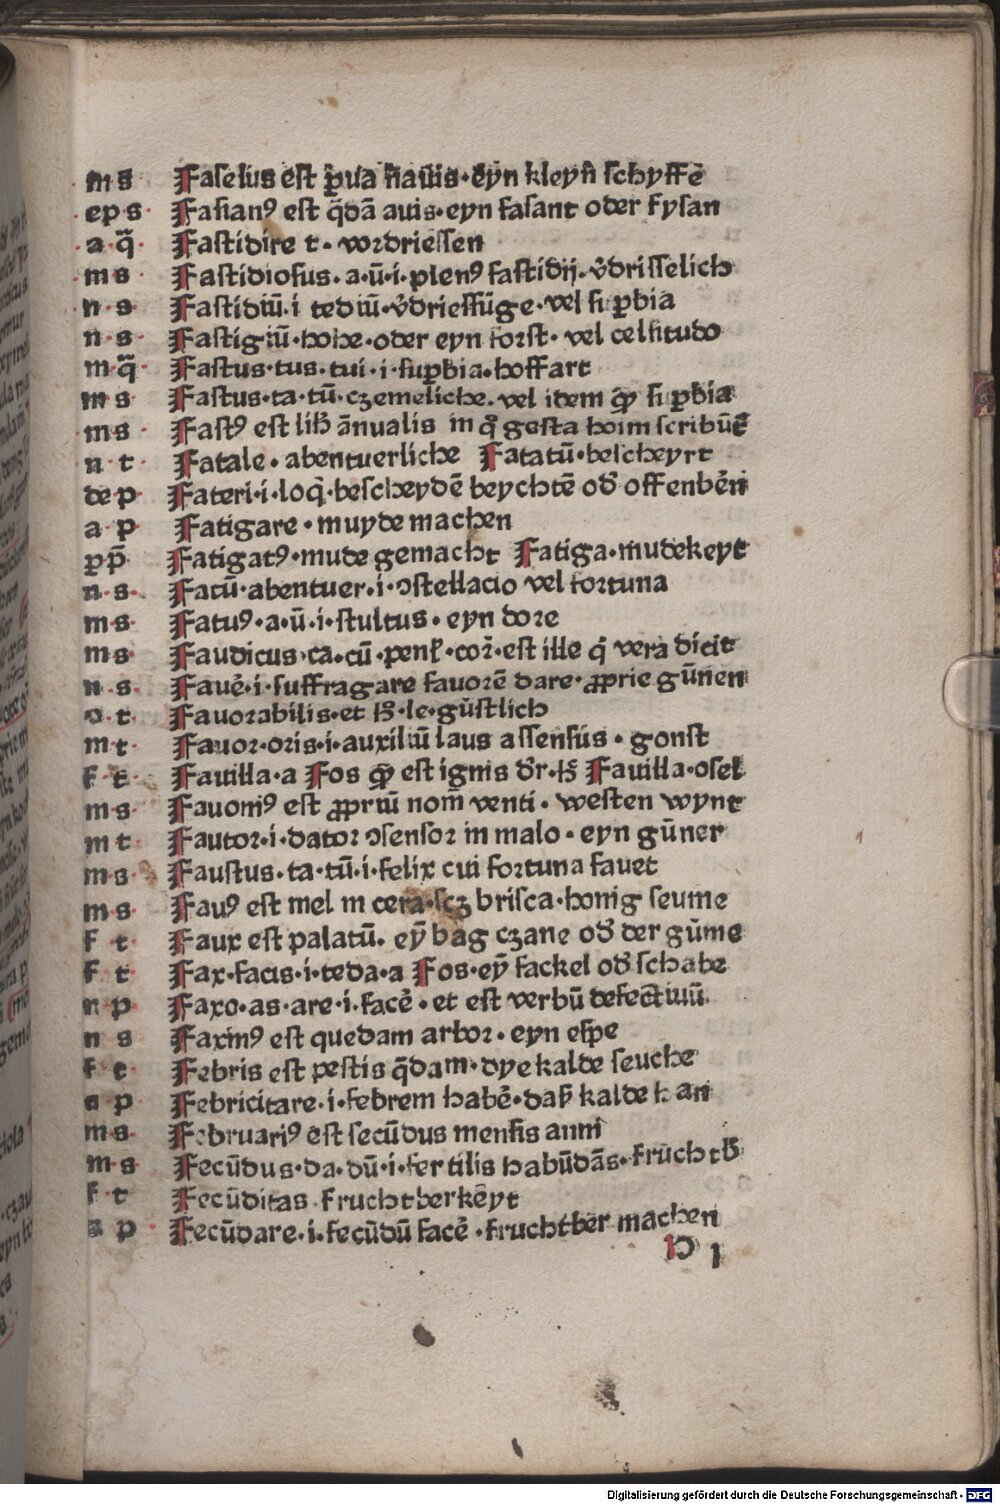 m s Faselius est ꝑua nauis·eyn kleyn schyffē
ep s· Fasianꝰ est q̄dā auis·eyn fasant oder fysan
·a·q̄· Fastidire t· vordriessen
·m s· Fastidiosus·a·ū·i·plenꝰ fastidij·v̓drisselich
n·s· Fastidiū·i tediū·v̓driessūge·vel suꝑbia
n·s· Fastigiū·hohe·oder eyn forst·vel celsitudo
m·q̄· Fastus·tus·tui·i·suꝑbia·hoffart
m s Fastus·ta·tū·czemeliche·vel idem qđ suꝑbia
m s· Fastꝰ est lib̓ ānualis in q̊ gesta hoim scribūt̄
n·t· Fatale·abentuerliche Fatatū·bescheyrt
de p Fateri·i·loq̄·bescheydē beychtē od̓ offenbēn
a p Fatigare·muyde machen
ꝑp̄ Fatigatꝰ·mude gemacht Fatiga·mudekeyt
n·s· Fatū·abentuer·i·ꝯstellacio vel fortuna
m s Fatuꝰ·a·ū·i·stultus·eyn dore
m s Faudicus·ca·cū·penl̓·cor̄·est ille q̓ vera dicit
n·s· Fauē·i·suffragare fauorē dare·ꝓprie gūnen
o·t· Fauorabilis·et hͦ·le·gūstlich
m t· Fauor·oris·i·auxiliū laus assensus·gonst
f t· Fauilla·a Fos qđ est ignis dr̄·hͦ Fauilla·osel
m·s· Fauoniꝰ est ꝓpriū nom̄ venti·westen wynt
m t Fautor·i·dator ꝯsensor in malo·eyn gūner
m s Faustus·ta·tū·i·felix cui fortuna fauet
m·s Fauꝰ est mel in cera·scz brisca·honig seume
f t· Faux est palatū·eȳ bag czane od̓ der gūme
f t Fax·facis·i·teda·a Fos·eȳ fackel od̓ schabe
n p Faxo·as·are·i·facē·et est verbū defectiuū
n s Faxinꝰ est quedam arbor·eyn espe
f t· Febris est pestis q̄dam·dye kalde seuche
a p Febricitare·i·febrem habē·daß kalde han
m s Februariꝰ est secūdus mensis anni
m·s Fecūdus·da·dū·i·fertilis habūdās·fruchtb̓
f t Fecūditas·fruchtberkēyt
a p· Fecūdare·i·fecūdū facē·fruchtber machen
Digitalisierung gefördert durch die Deutsche Forschungsgemeinschaft · DFG